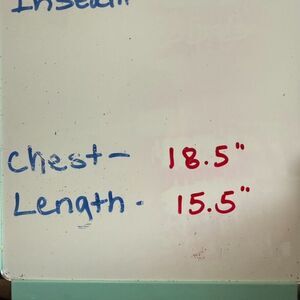 Inseam
Chest- 18.5"
Length- 15.5"